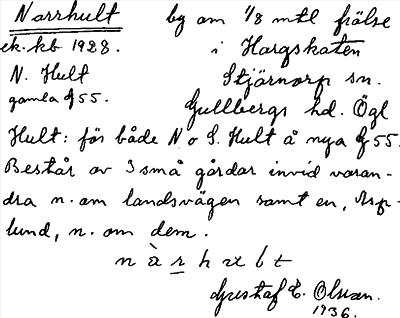 Narrhult bg om 1/8 mtl frälse
ek. kb 1928. i Hargskaten
N. Hult Stjärnorp sn.
gamla G 55. Gullbergs hd. Ögl
Hult: för både N o S. Hult å nya G 55.
Består av 3 små gårdar invid varan-
dra n. om landsvägen samt en, Asp-
lund, n. om dem.
Gustaf E. Olsson.
1936.